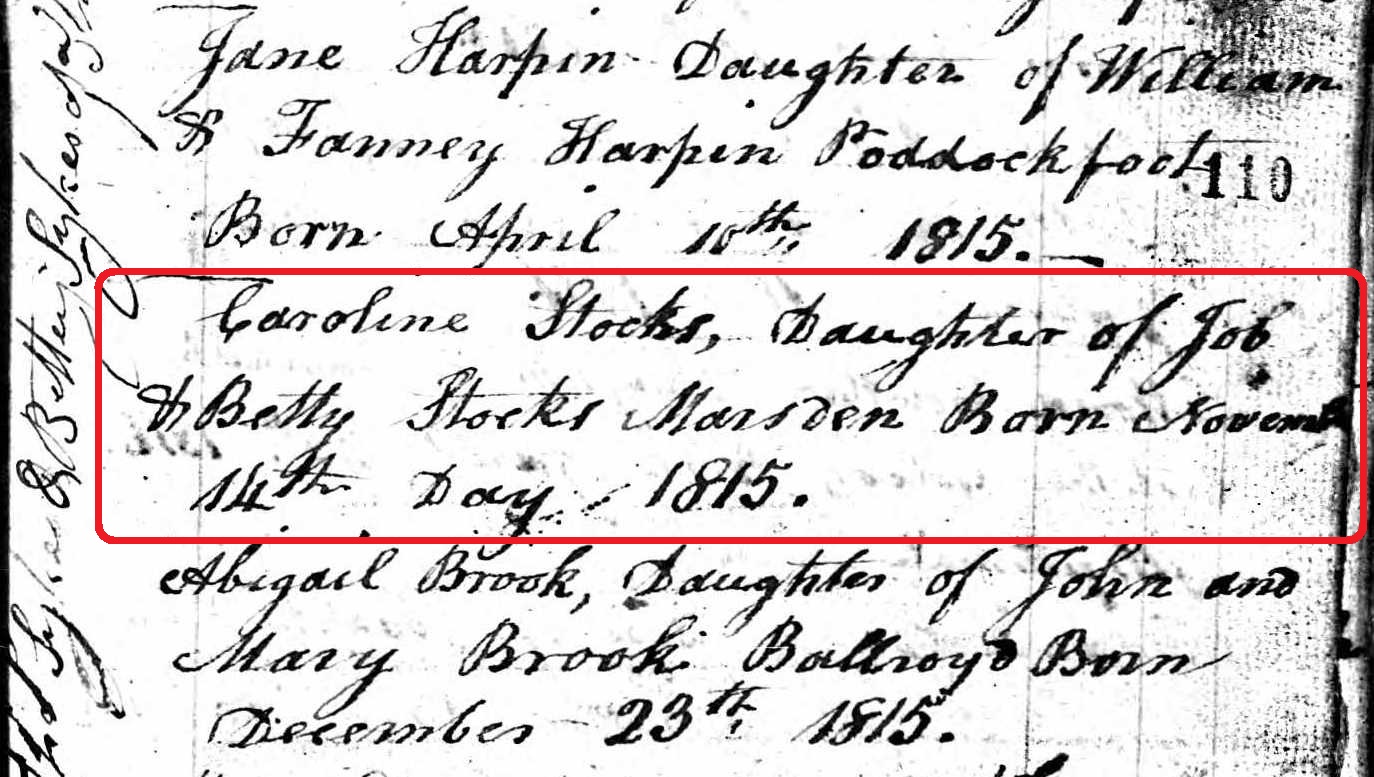 Jane Harpin Daughter of William
& Fanney Harpin Poddockfoot
110
Born April 10th 1815.
Caroline Stocks, Daughter of Job
& Betty Stocks Marsden Born Novemb
14th Day 1815.
Abigail Brook, Daughter of John and
Mary Brook Ballroyd Born
December 23th 1815.
Sykes & Betty Sykes of